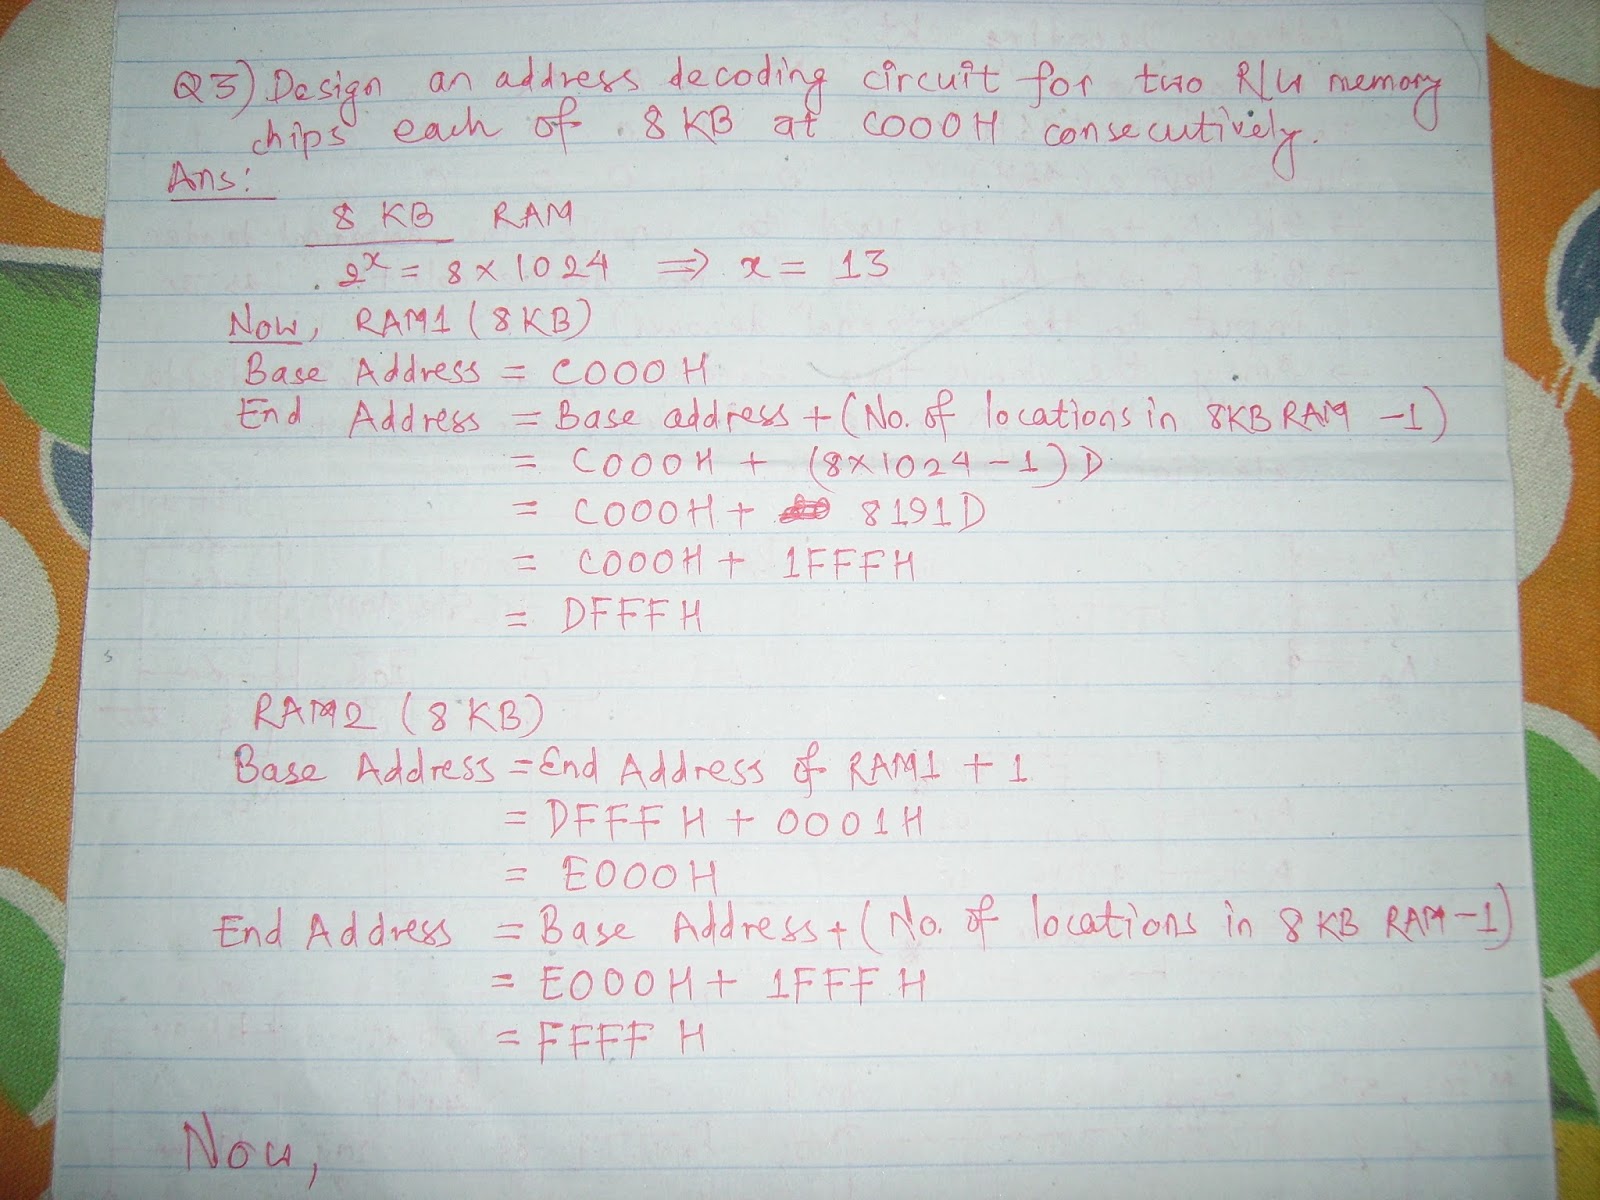 Q3) Design an address decoding circuit for two R/W memory
chips each of 8 KB at C000H consecutively.
Ans:
8 KB RAM
2^x = 8 × 1024 ⇒ x = 13
Now, RAM1 (8KB)
Base Address = C000H
End Address = Base address + (No. of locations in 8KB RAM - 1)
= C000H + (8×1024 - 1) D
= C000H + 8191D
= C000H + 1FFFH
= DFFFH
RAM2 (8 KB)
Base Address = End Address of RAM1 + 1
= DFFFH + 0001H
= E000H
End Address = Base Address + (No. of locations in 8 KB RAM - 1)
= E000H + 1FFFH
= FFFFH
Now,